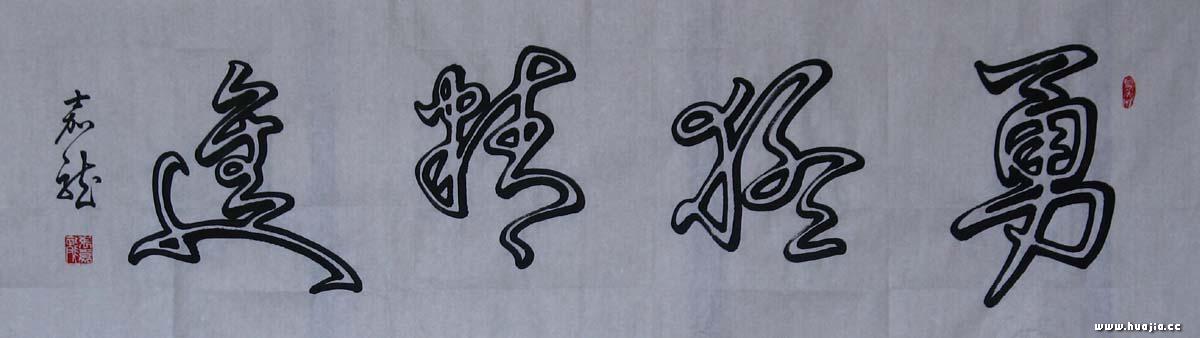 勇猛精進
嘉龍
www.huajia.cc